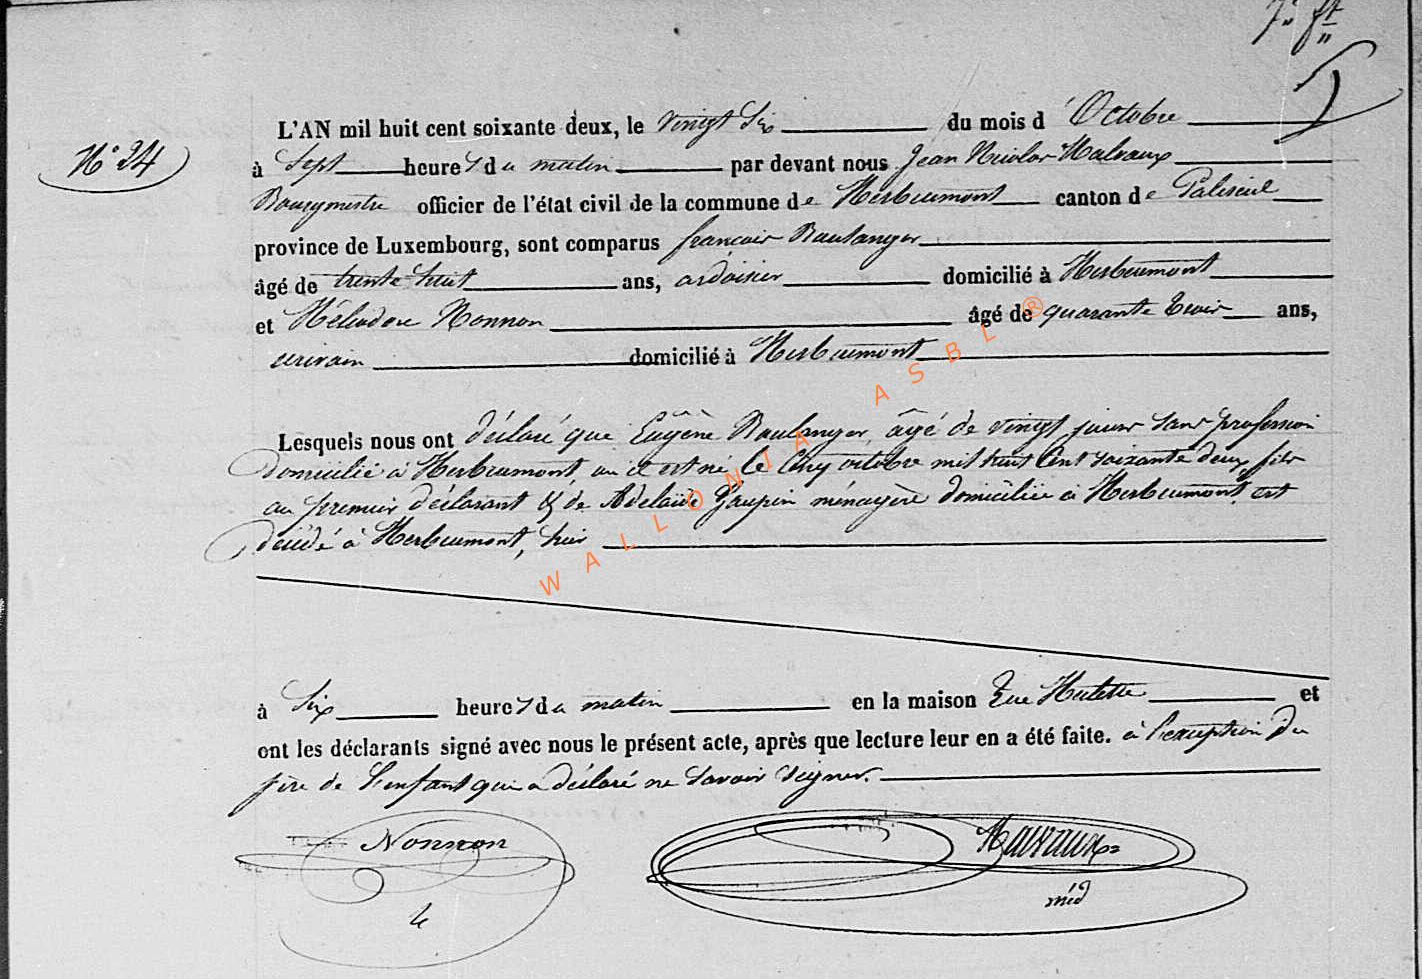 N° 24
L'AN mil huit cent soixante deux, le vingt six du mois d'Octobre
à Sept heures du matin par devant nous Jean Nicolas Malvaux
Bourgmestre officier de l'état civil de la commune de Herbeumont canton de Paliseul
province de Luxembourg, sont comparus francois Boulanger
âgé de trente huit ans, ardoisier domicilié à Herbeumont
et Héliodore Nonnon âgé de quarante trois ans,
écrivain domicilié à Herbeumont
Lesquels nous ont déclaré que Eugène Boulanger, âgé de vingt jours sans profession
domicilié à Herbeumont, où il est né le cinq octobre mil huit cent soixante deux fils
au premier déclarant & de Adelaïde Gaupin ménagère domiciliée à Herbeumont est
décédé à Herbeumont, hier
à Six heures du matin en la maison Rue Hulette et
ont les déclarants signé avec nous le présent acte, après que lecture leur en a été faite. à l'exception du
père de l'enfant qui a déclaré ne savoir signer.
Nonnon
Malvaux
WALLONIA ASBL ®